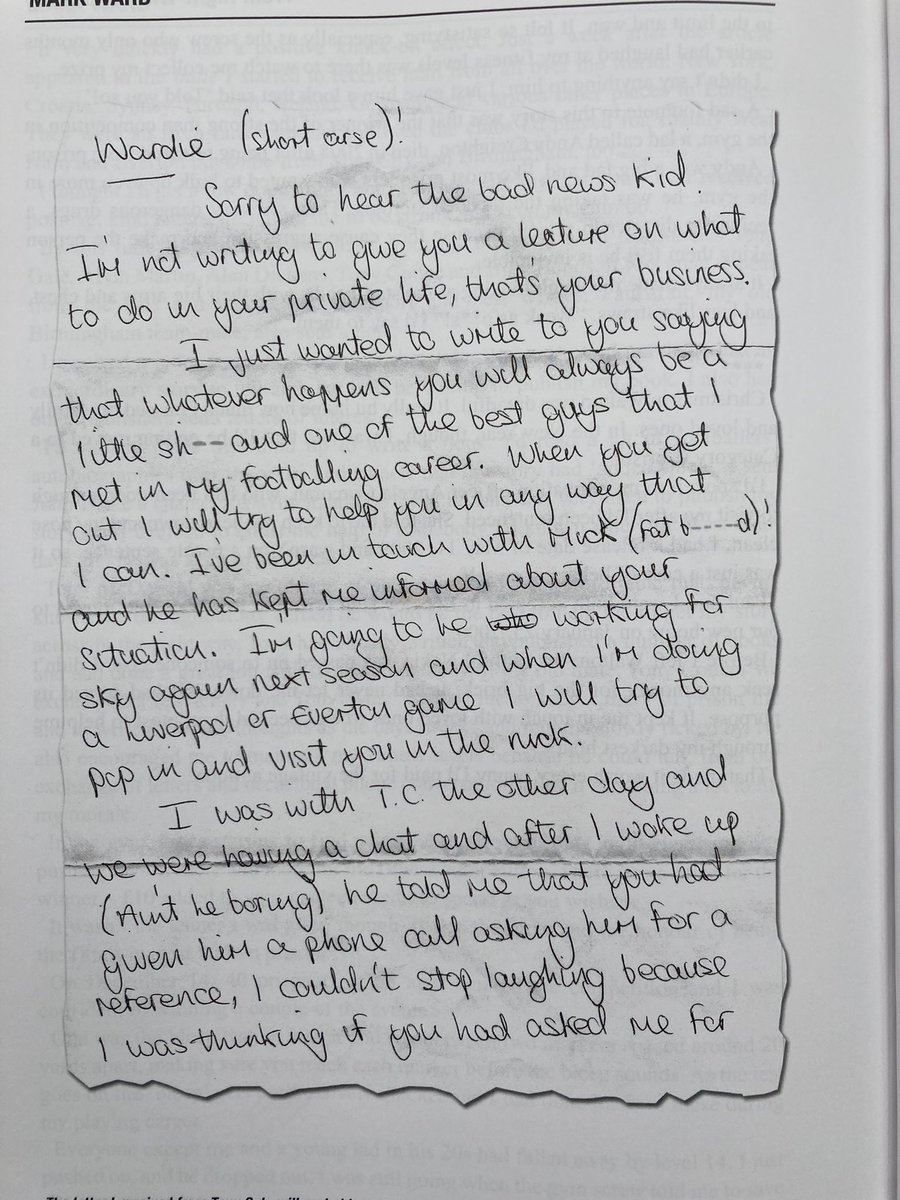 MARK WARD
Wardie (short arse)!
Sorry to hear the bad news kid.
I'm not writing to give you a lecture on what
to do in your private life, that's your business.
I just wanted to write to you saying
that whatever happens you will always be a
little sh-- and one of the best guys that I
met in my footballing career. When you get
out I will try to help you in any way that
I can. I've been in touch with Mick (fat b----d)!
and he has kept me informed about your
situation. I'm going to be working for
sky again next season and when I'm doing
a Liverpool or Everton game I will try to
pop in and visit you in the nick.
I was with T.C. the other day and
we were having a chat and after I woke up
(Ain't he boring) he told me that you had
given him a phone call asking him for a
reference, I couldn't stop laughing because
I was thinking if you had asked me for